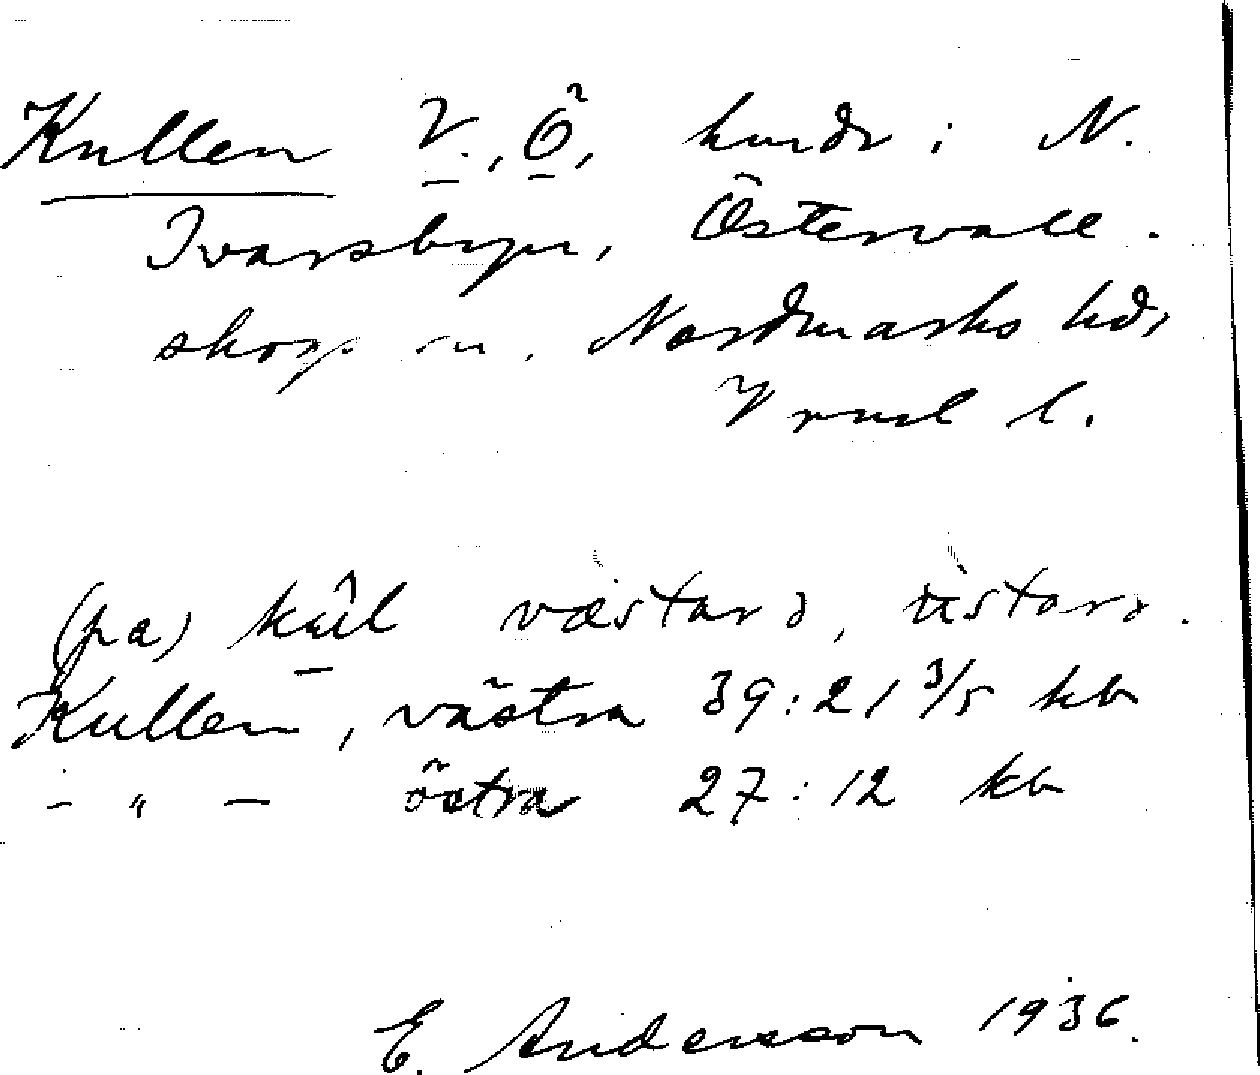 Kullen V., Ö, hmdr i N.
Ivarsbyn, Östervall-
skogs sn. Nordmarks hd,
Vrml l.
(pa) kûl væstarə, ustarə.
Kullen, västra 39:21 3/5 kb
- " - östra 27:12 kb
E. Andersson 1936.